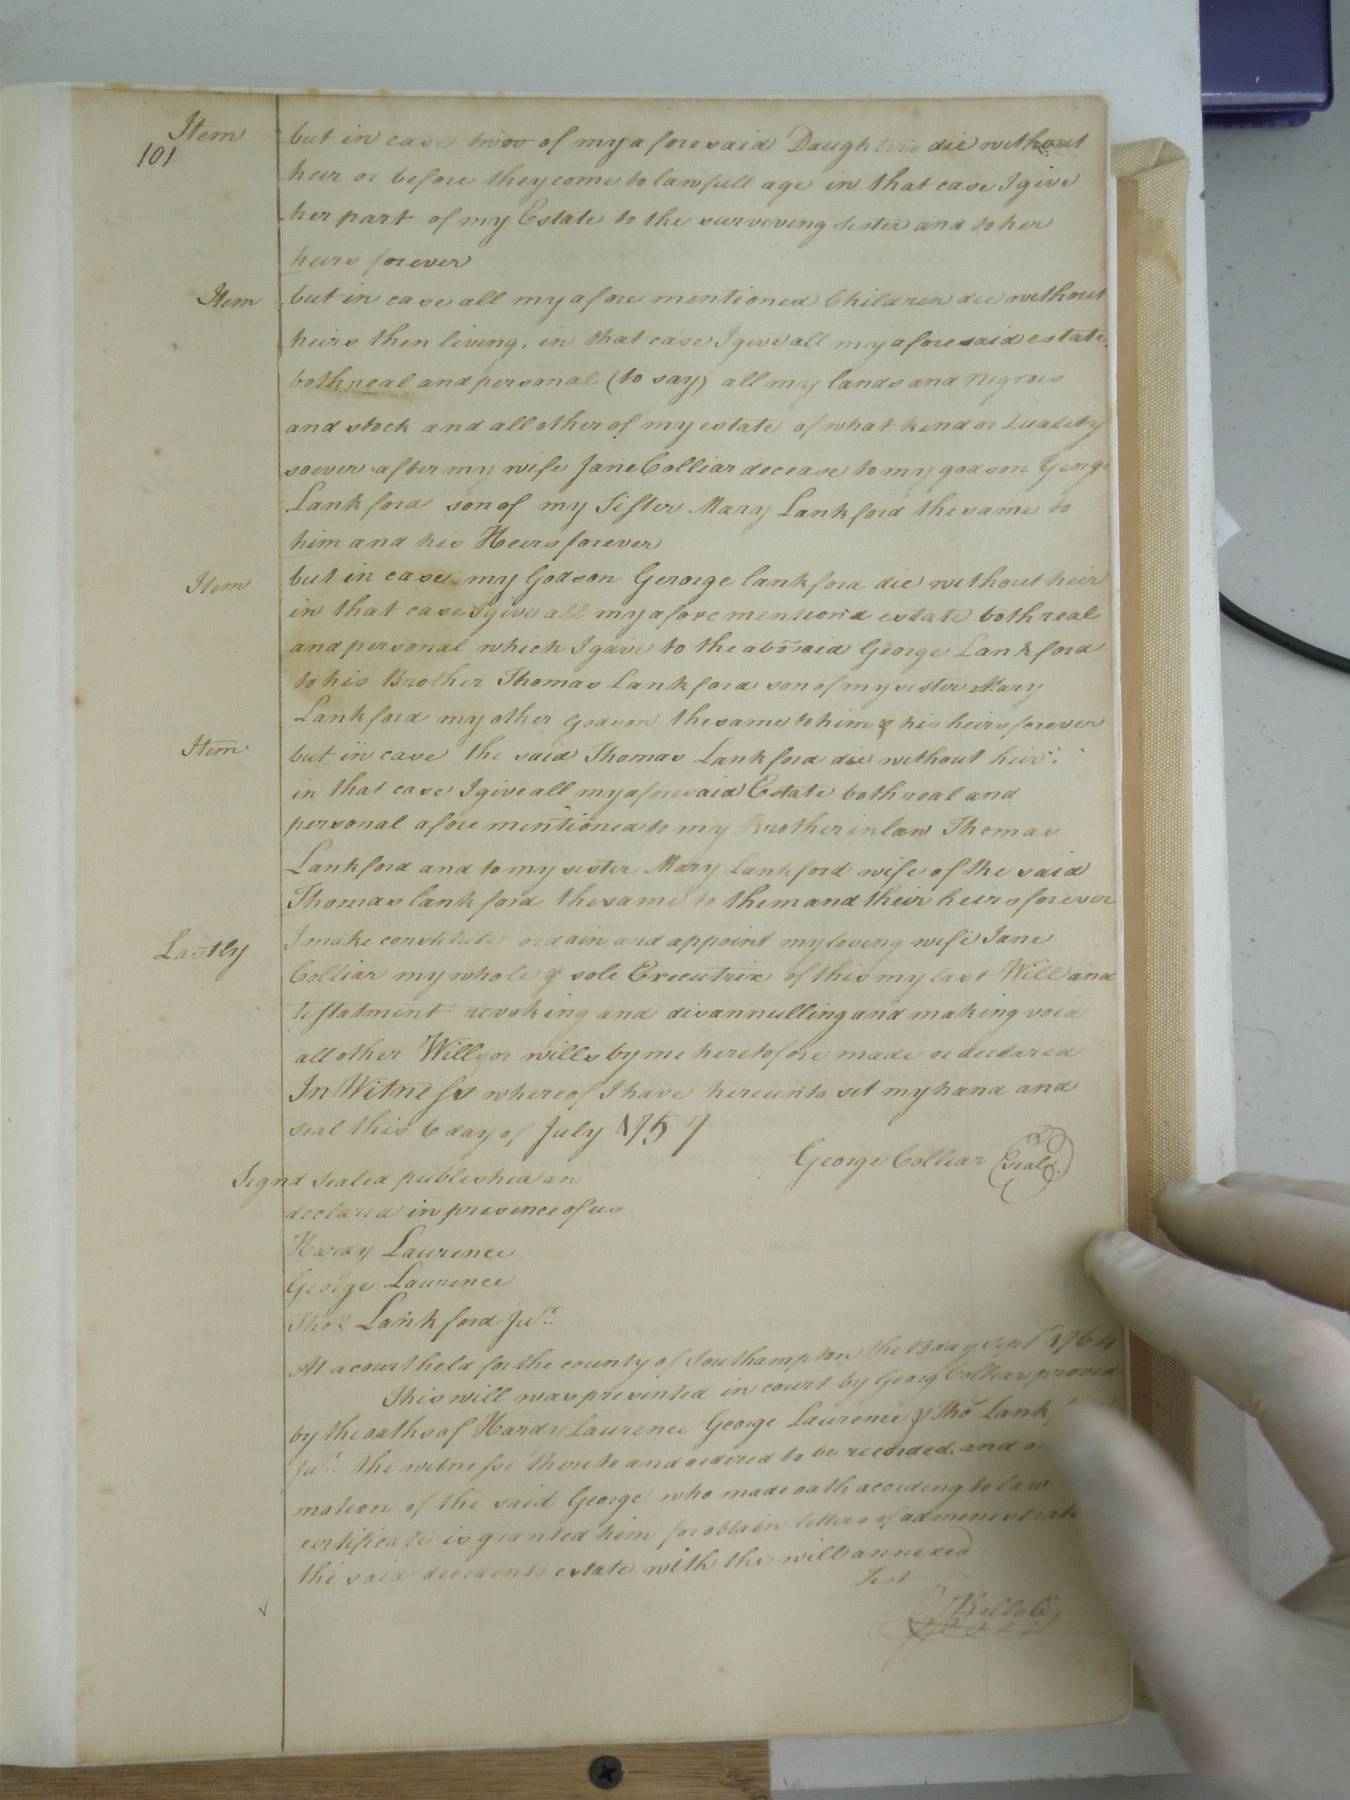 Item
101
but in case twoo of my aforesaid Daughters die without
heir or before they come to lawfull age in that case I give
her part of my Estate to the surveving sister and to her
heirs forever
Item but in case all my afore mentioned Children die without
heirs then living. in that case I give all my aforesaid estate
both real and personal (to say) all my lands and Negroes
and stock and all other of my estate of what kind or Quality
soever after my wife Jane Colliar decease to my godson George
Lankford son of my Sister Mary Lankford the same to
him and his Heirs forever
Item but in case my Godson Geroige lankford die without heir
in that case I give all my afore mention'd estate both real
and personal which I gave to the abōsaid George Lankford
to his Brother Thomas Lankford son of my sister Mary
Lankford my other Godson the same to him & his heirs forever
Item but in case the said Thomas Lankford die without heir
in that case I give all my aforesaid Estate both real and
personal afore mentioned to my Brother in law Thomas
Lankford and to my sister Mary Lankford wife of the said
Thomas lankford the same to them and their heirs forever
Lastly I make constitute ordain and appoint my loving wife Jane
Colliar my whole & sole Executrix of this my last Will and
testatment revoking and disannulling and making void
all other Will or wills by me heretofore made or declared
In Witness whereof I have hereunto set my hand and
seal this 6 day of July 1757
George Colliar (Seal)
Signd sealed published an
declared in presence of us
Hardy Laurence
George Laurence
Thos Lankford Jur
At a court held for the county of Southampton the 13 day Sept 1764
This will was presented in court by Georg Colliar proved
by the oaths of Hardy Laurence George Laurence & Tho Lankf
Jur the witnesse thereto and ordered to be recorded. and o
motion of the said George who made oath according to law
certificate is granted him for obtain letters of admenestrat
the said decedents estate with the will annexed
Test